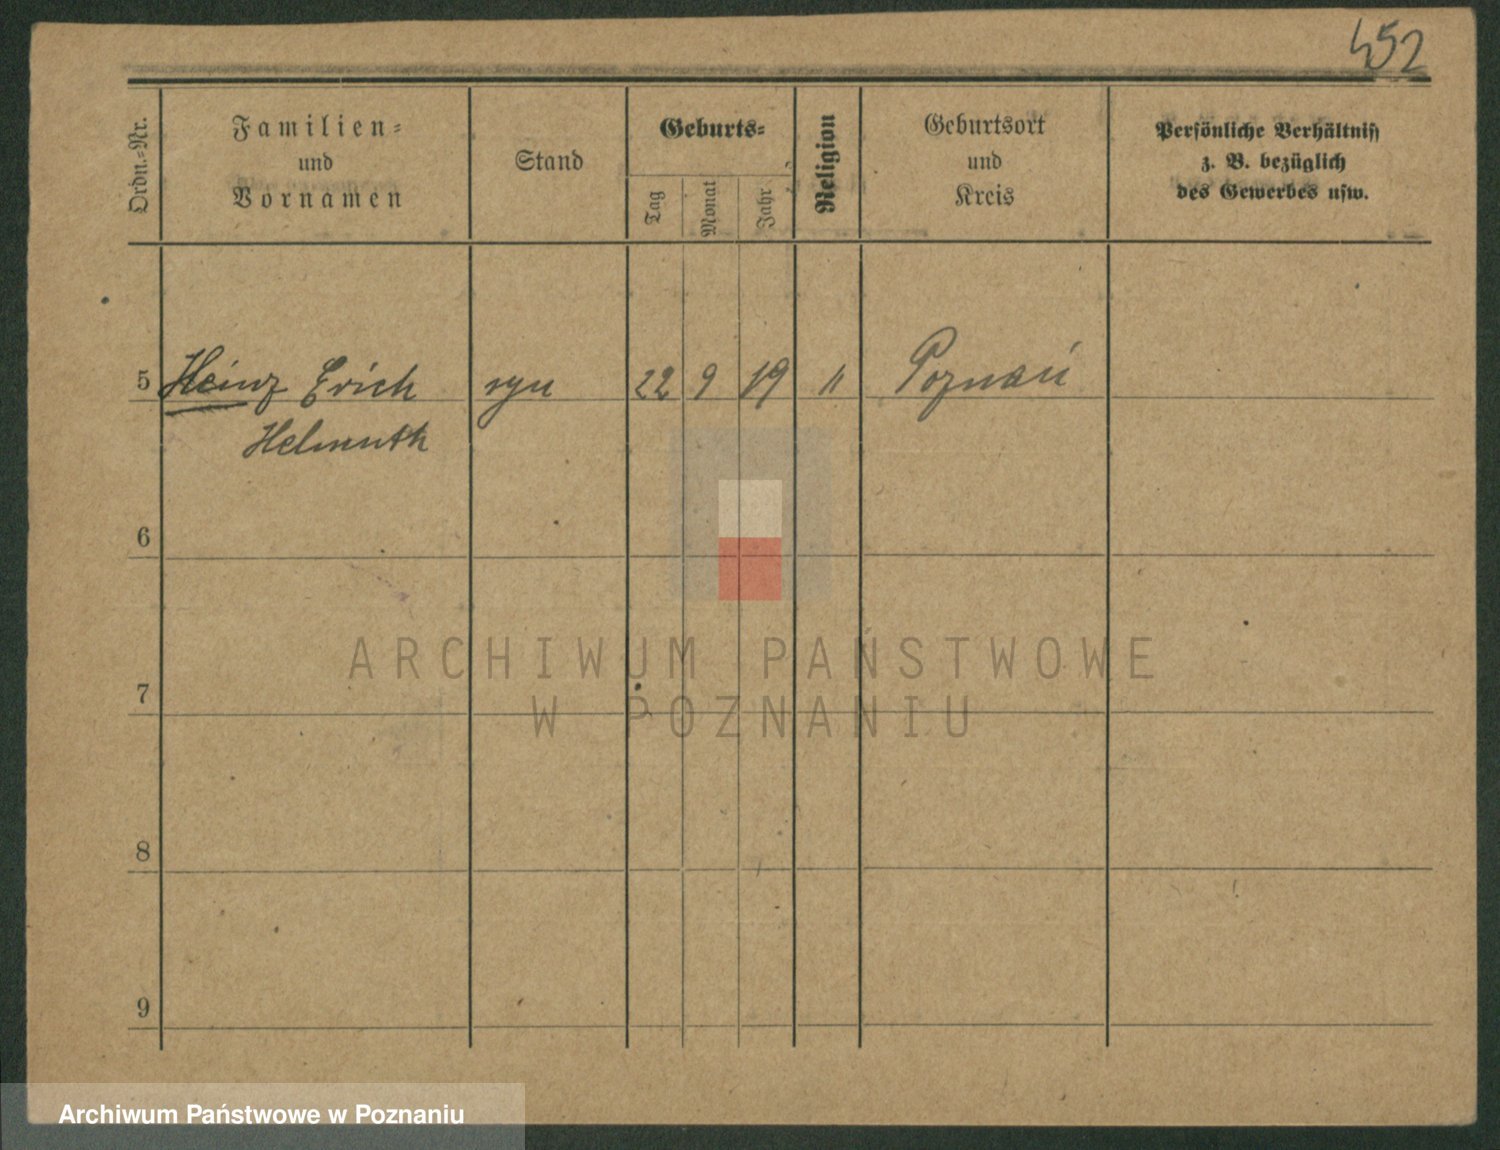 452
Ordn.-Nr.
Familien-
und
Vornamen
Stand
Geburts-
Tag
Monat
Jahr
Religion
Geburtsort
und
Kreis
Persönliche Verhältniss
z. B. bezüglich
des Gewerbes usw.
5 Heinz Erich syn 22 9 19 " Poznań
Helmuth
6
7
8
9
ARCHIWUM PAŃSTWOWE
W POZNANIU
Archiwum Państwowe w Poznaniu